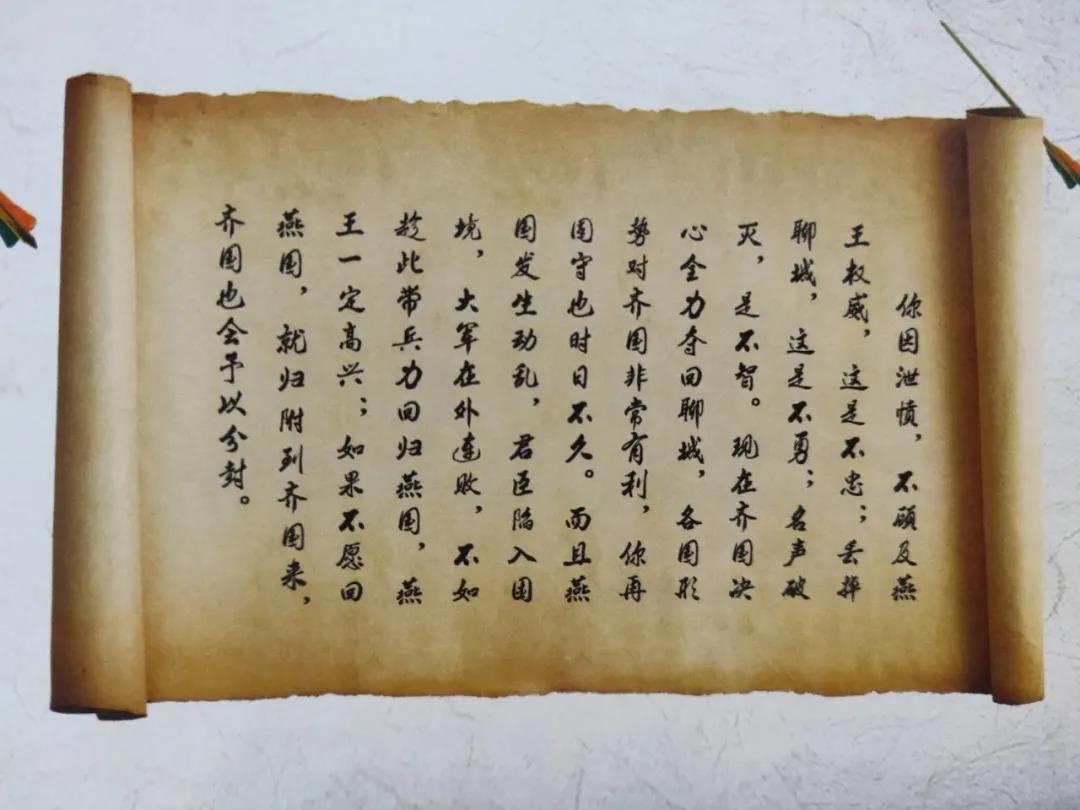 你因泄愤，不顾及燕
王权威，这是不忠；丢掉
聊城，这是不勇；名声破
灭，是不智。现在齐国决
心全力夺回聊城，各国形
势对齐国非常有利，你再
固守也时日不久。而且燕
国发生动乱，君臣陷入困
境，大军在外连败，不如
趁此带兵力回归燕国，燕
王一定高兴；如果不愿回
燕国，就归附到齐国来，
齐国也会予以分封。